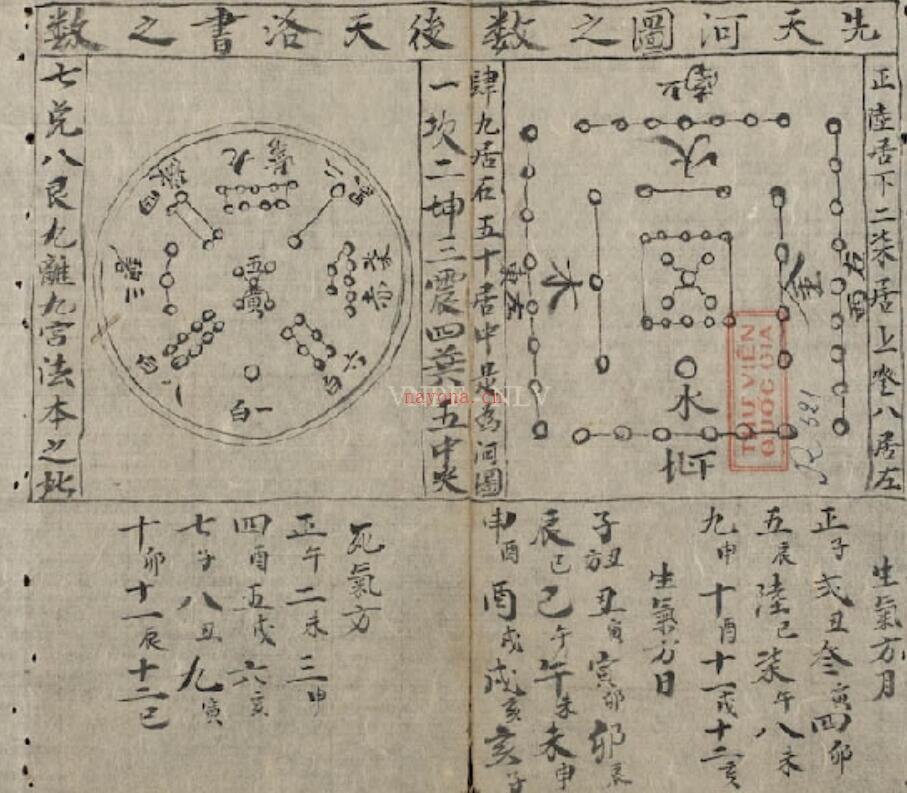 先天河圖之數
後天洛書之數
正陸居下二柒居上叁八居左
肆九居右五十居中是為河圖
一坎二坤三震四巽五中央
七兌八艮九離九宮法本之此
火
木
金
水
九紫
五黃
一白
六白
生氣方月
正子弍丑叁寅四卯
五辰陸巳柒午八未
九申十酉十一戌十二亥
生氣方日
子丑方丑寅寅卯卯辰
辰巳巳午午未未申
申酉酉戌戌亥亥子
死氣方
正午二未三申
四酉五戌六亥
七子八丑九寅
十卯十一辰十二巳
THƯ VIỆN
QUỐC GIA
R 521
nayona.cn